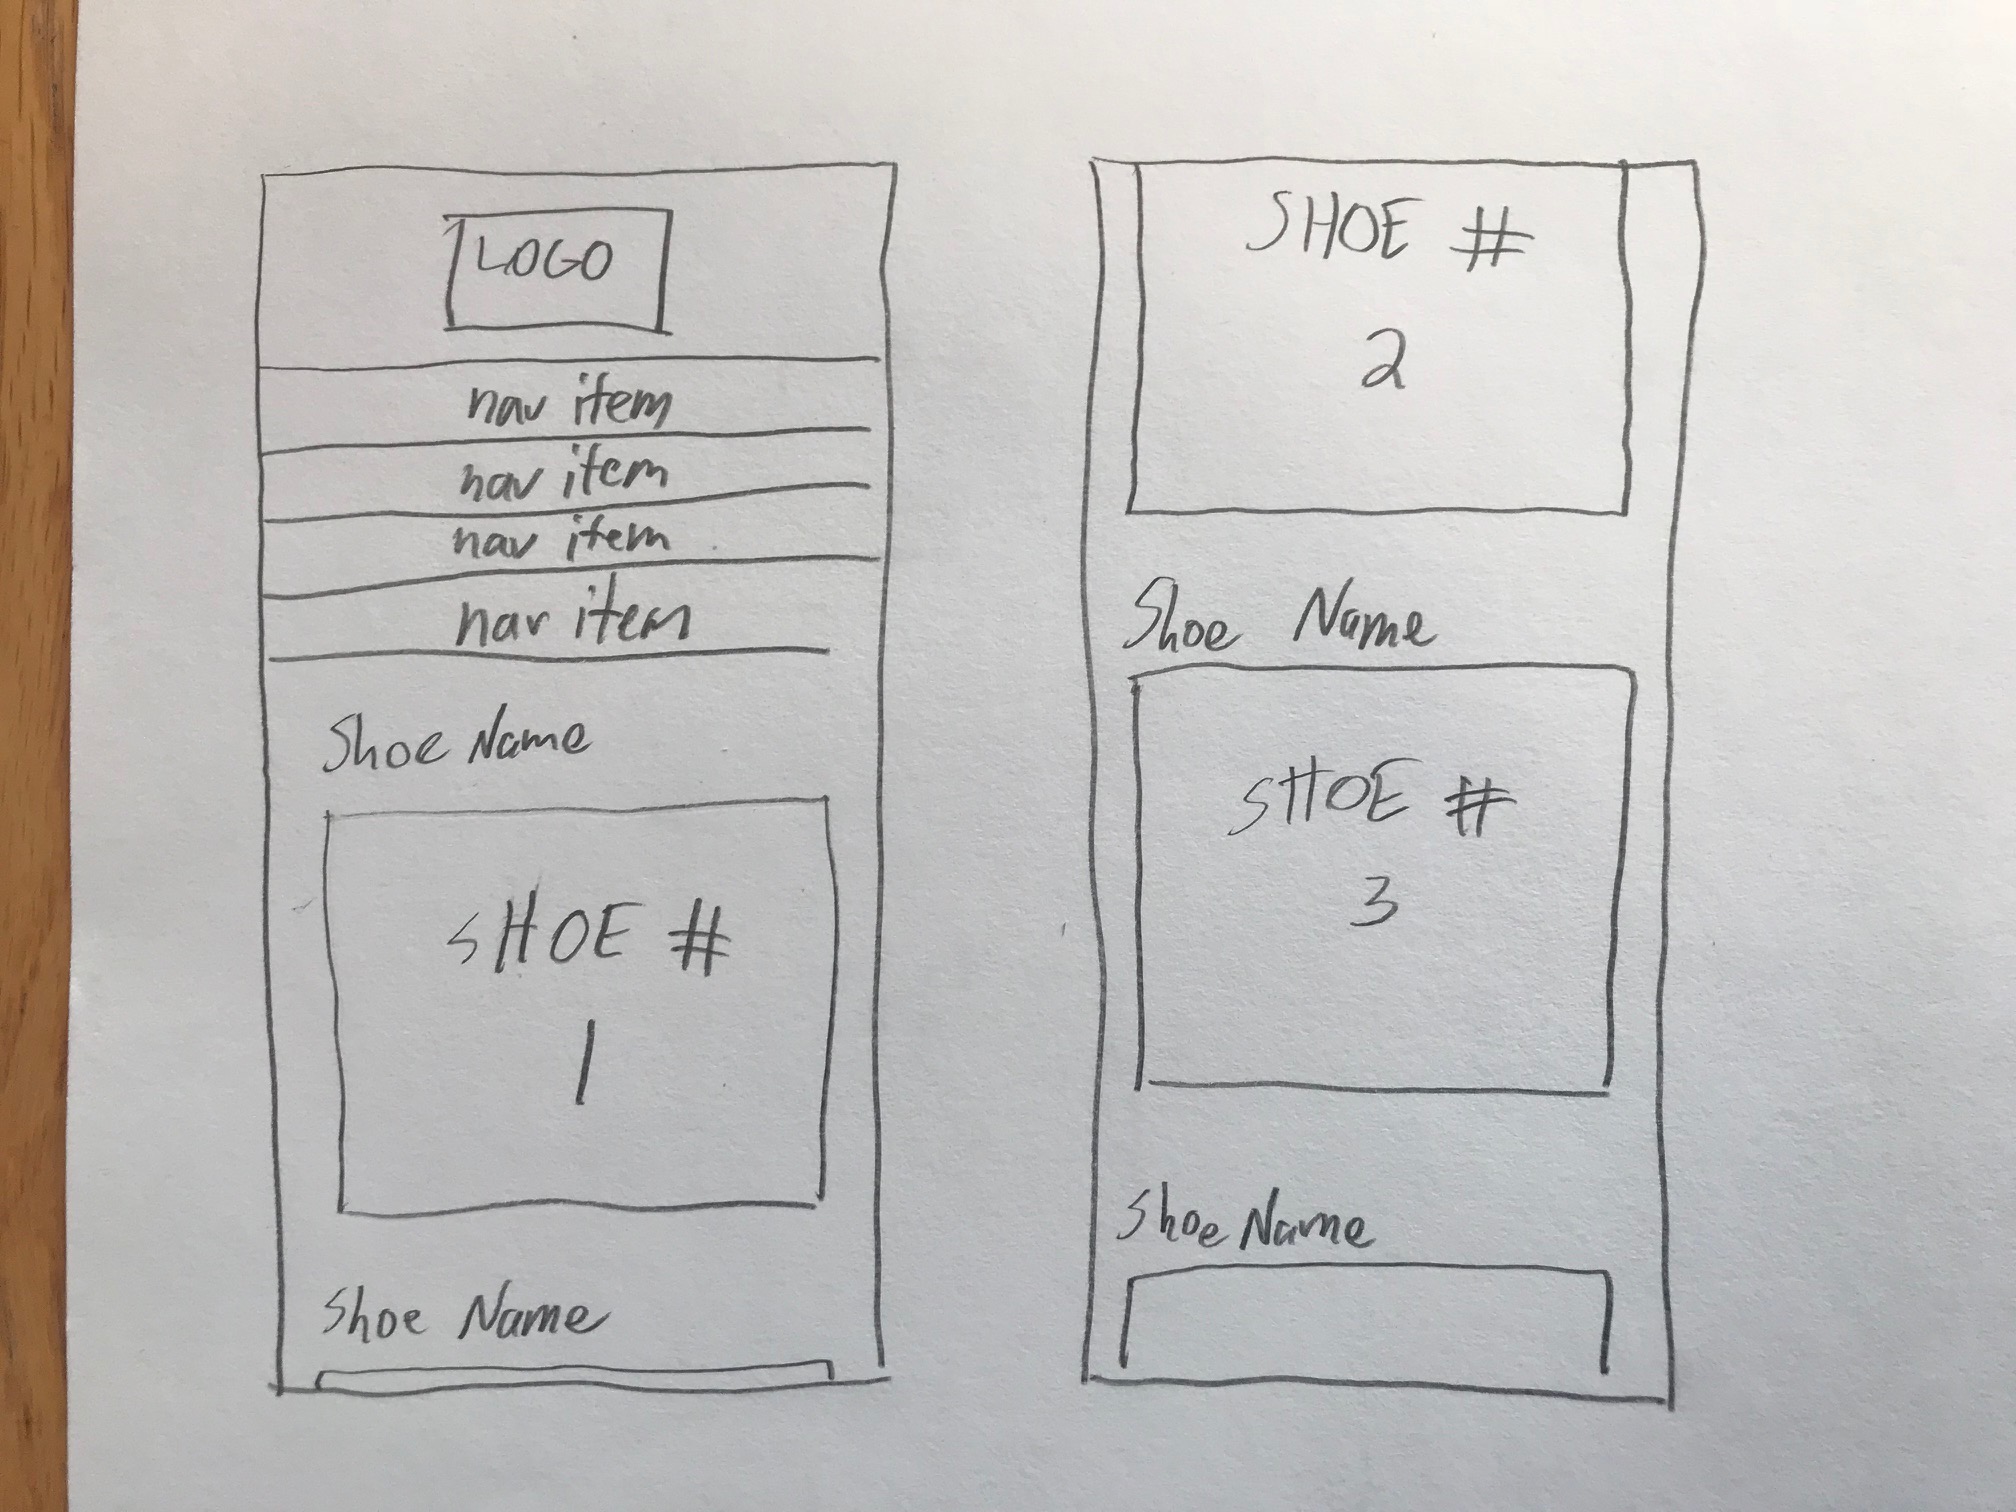 LOGO
nav item
nav item
nav item
nav item
Shoe Name
SHOE #
1
Shoe Name
SHOE #
2
Shoe Name
SHOE #
3
Shoe Name